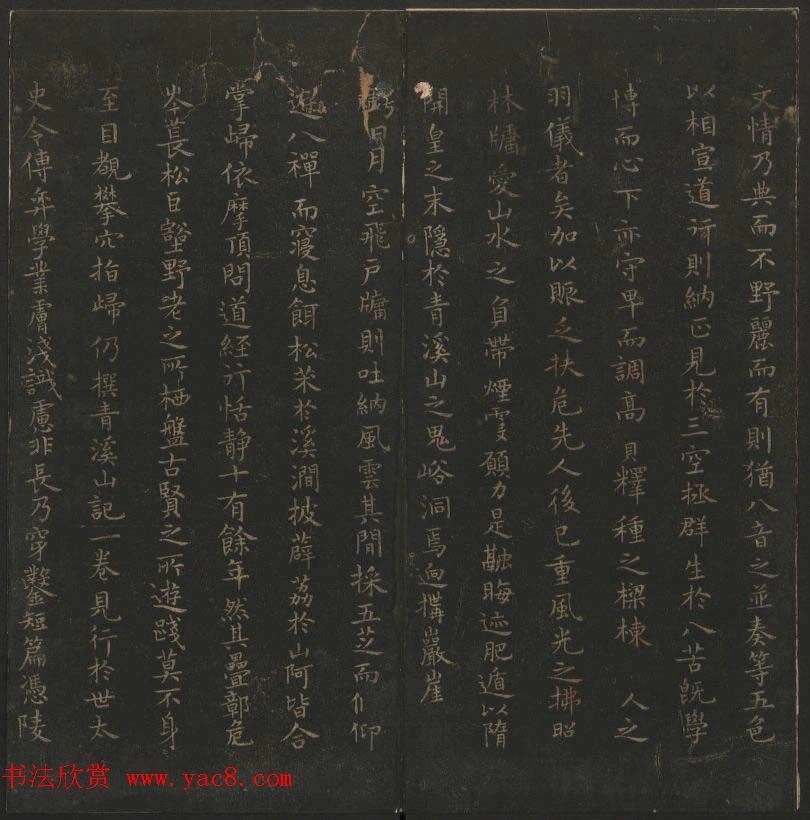 文情乃典而不野麗而有則猶八音之並奏等五色
以相宣道行則納正見於三空拯群生於八苦既學
博而心下亦守卑而調高具釋種之樑棟 人之
羽儀者矣加以賑乏扶危先人後己重風光之拂照
林牖愛山水之負帶煙雲願力是融晦迹肥遁以隋
開皇之末隱於青溪山之鬼峪洞焉迥構巖崖
虧日月空飛戶牖則吐納風雲其間採五芝而偃仰
遊八禪而寢息餌松朮於溪澗披薜荔於山阿皆合
掌歸依摩頂問道經行恬靜十有餘年然其疊嶂危
岑長松巨豁野老之所栖盤古賢之所遊踐莫不身
至目覩攀穴指歸仍撰青溪山記一卷見行於世太
史令傅弈學業膚淺識慮非長乃穿鑿短篇憑陵
书法欣赏 www.yac8.com